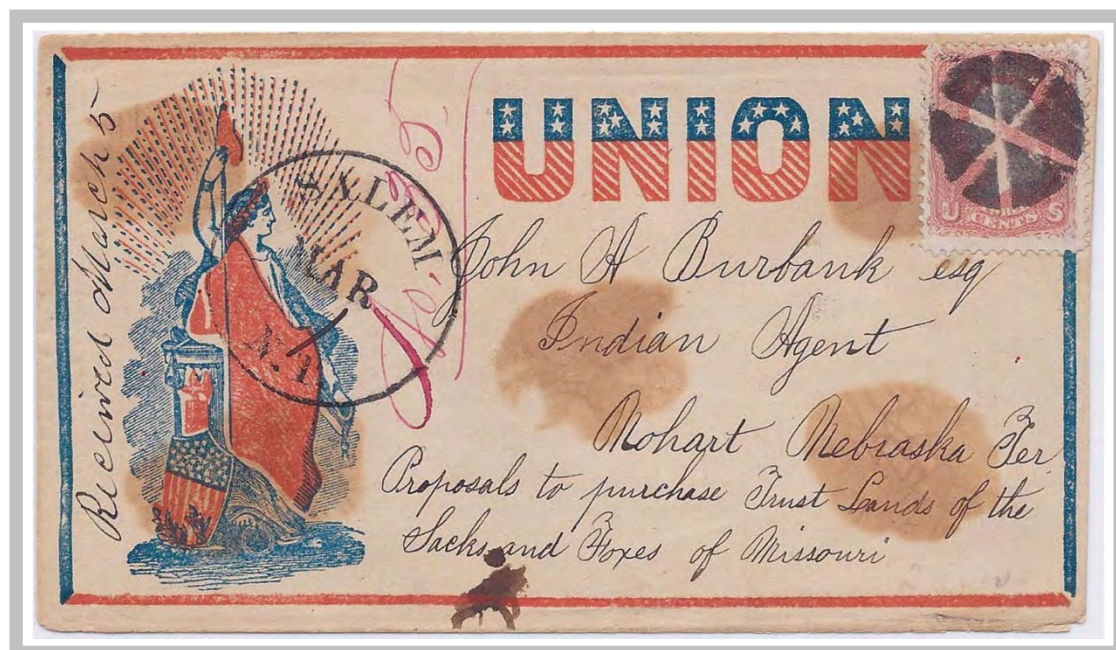 Received March 5
UNION
SALEM
MAR
N.T.
U S
CENTS
John A Burbank esq
Indian Agent
Nohart Nebraska Ter
Proposals to purchase Trust Lands of the
Sacks and Foxes of Missouri